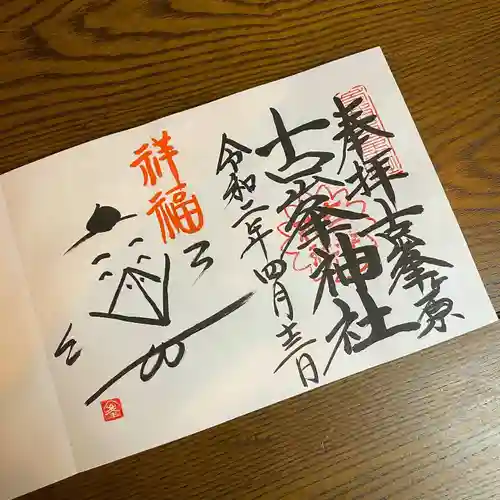 奉拝 古峯原
古峯神社
令和二年四月十二日
祥福